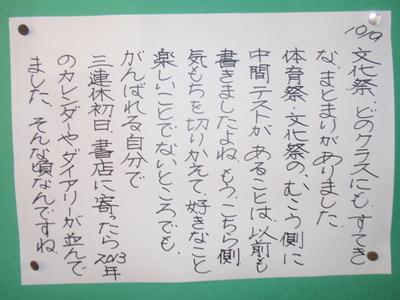 10/9
文化祭、どのクラスにも、すてき
な、まとまりがありました。
体育祭・文化祭の、むこう側に
中間テストが、あることは、以前も
書きましたよね。もう、こちら側
気もちを切りかえて、好きなこと
楽しいことでないところでも、
がんばれる自分で
三連休初日、書店に寄ったら2013年
のカレンダーやダイアリーが並んで
ました。そんな頃なんですね。